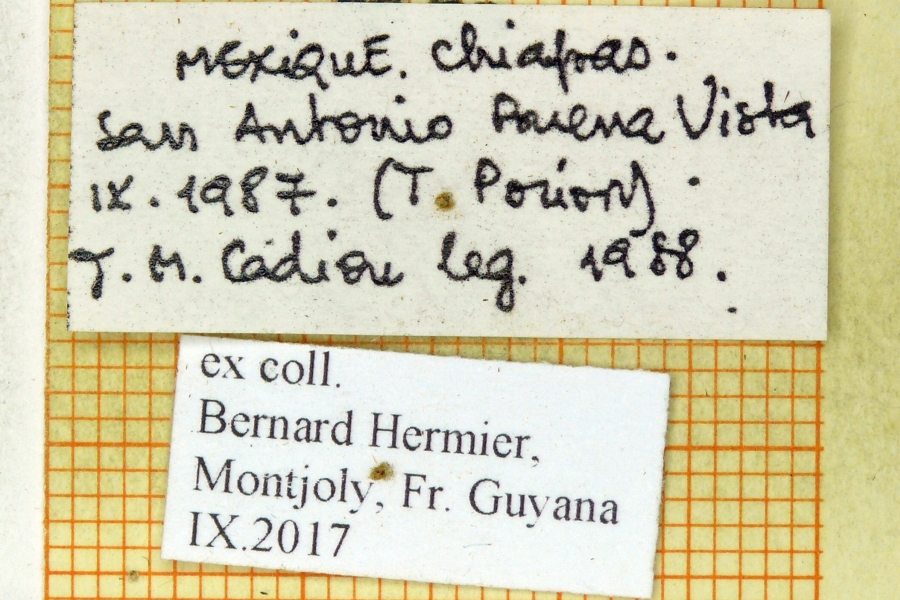 MEXIQUE. Chiapas.
San Antonio Buena Vista
IX. 1987. (T. Porion).
J. M. Cadiou leg. 1988.
ex coll.
Bernard Hermier,
Montjoly, Fr. Guyana
IX.2017